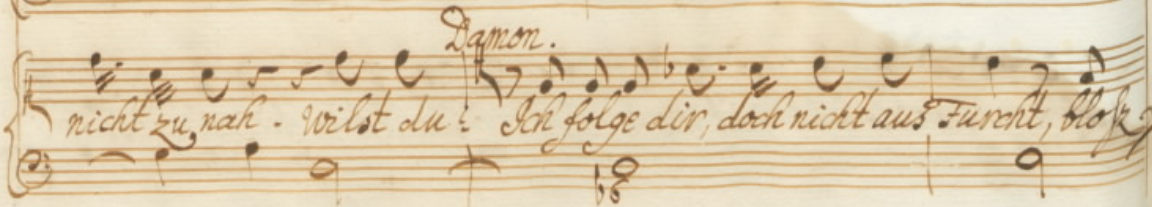 Damon.
nicht zu nah. wilst du! Ich folge dir, doch nicht aus Furcht, bloß
♭6